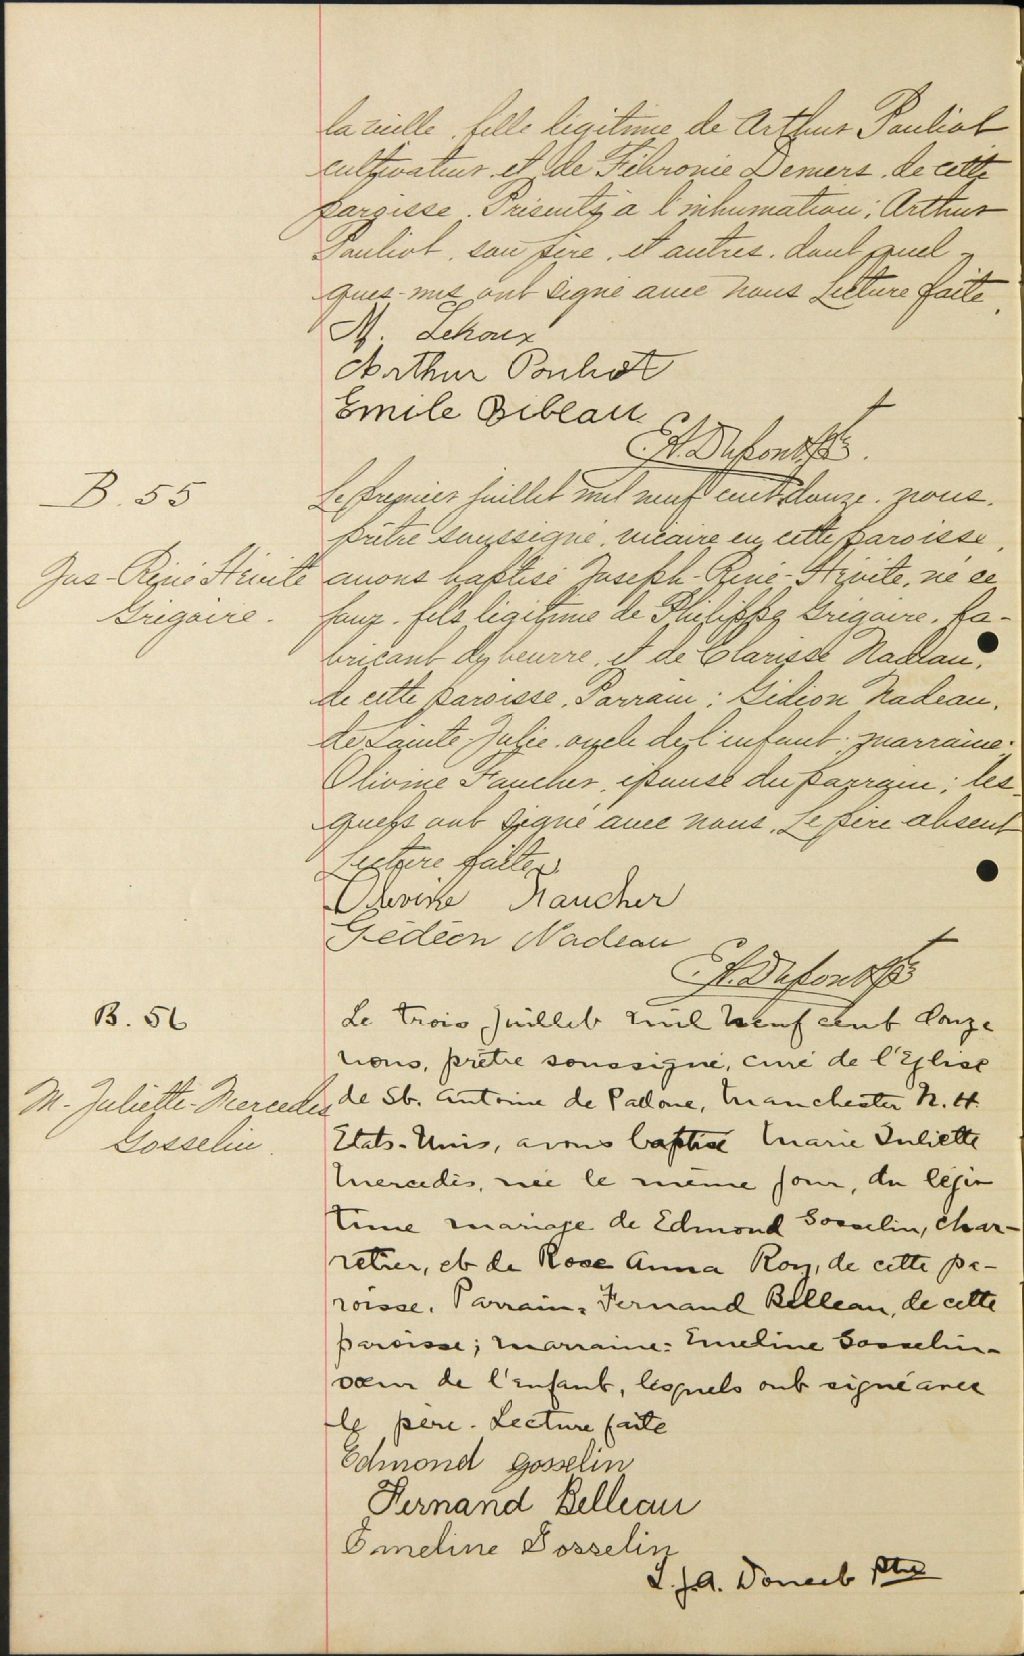 la veille, fille légitime de Arthur Pouliot
cultivateur, et de Fébronie Demers, de cette
paroisse. Présents à l'inhumation: Arthur
Pouliot, son père, et autres, dont quel-
ques-uns ont signé avec nous. Lecture faite.
Arthur Pouliot
Emile Bibeau
E.A. Dupont, Ptre.
B. 55
Le premier juillet mil neuf cent douze, nous,
prêtre soussigné, vicaire en cette paroisse,
Jos-René-Hévite
avons baptisé Joseph-René-Hévite, né ce
Grégoire.
jour, fils légitime de Philippe Grégoire, fa-
bricant de beurre, et de Clarisse Nadeau,
de cette paroisse. Parrain: Gédéon Nadeau,
de Sainte-Julie, oncle de l'enfant; marraine:
Olivine Faucher, épouse du parrain; les-
quels ont signé avec nous. Le père absent
Lecture faite.
Olivine Faucher
Gédéon Nadeau
E.A. Dupont, Ptre
B. 56
Le trois juillet mil neuf cent douze
nous, prêtre soussigné, curé de l'Eglise
M-Juliette-Mercedes
de St. Antoine de Padoue, Manchester N.H.
Gosselin.
Etats-Unis, avons baptisé Marie Juliette
Mercedès, née le même jour, du légi-
time mariage de Edmond Gosselin, char-
retier, et de Rose Anna Roy, de cette pa-
roisse. Parrain: Fernand Belleau, de cette
paroisse; marraine: Emeline Gosselin-
soeur de l'enfant, lesquels ont signé avec
le père. Lecture faite
Edmond Gosselin
Fernand Belleau
Emeline Gosselin
Ptre